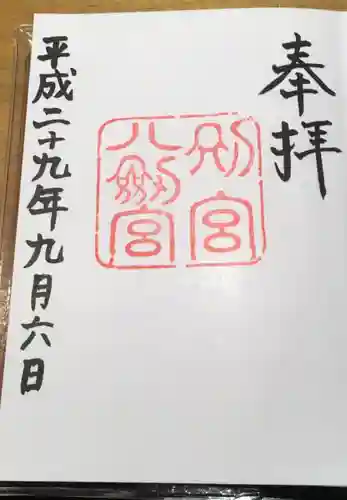 奉拝
別宮
八剣宮
平成二十九年九月六日